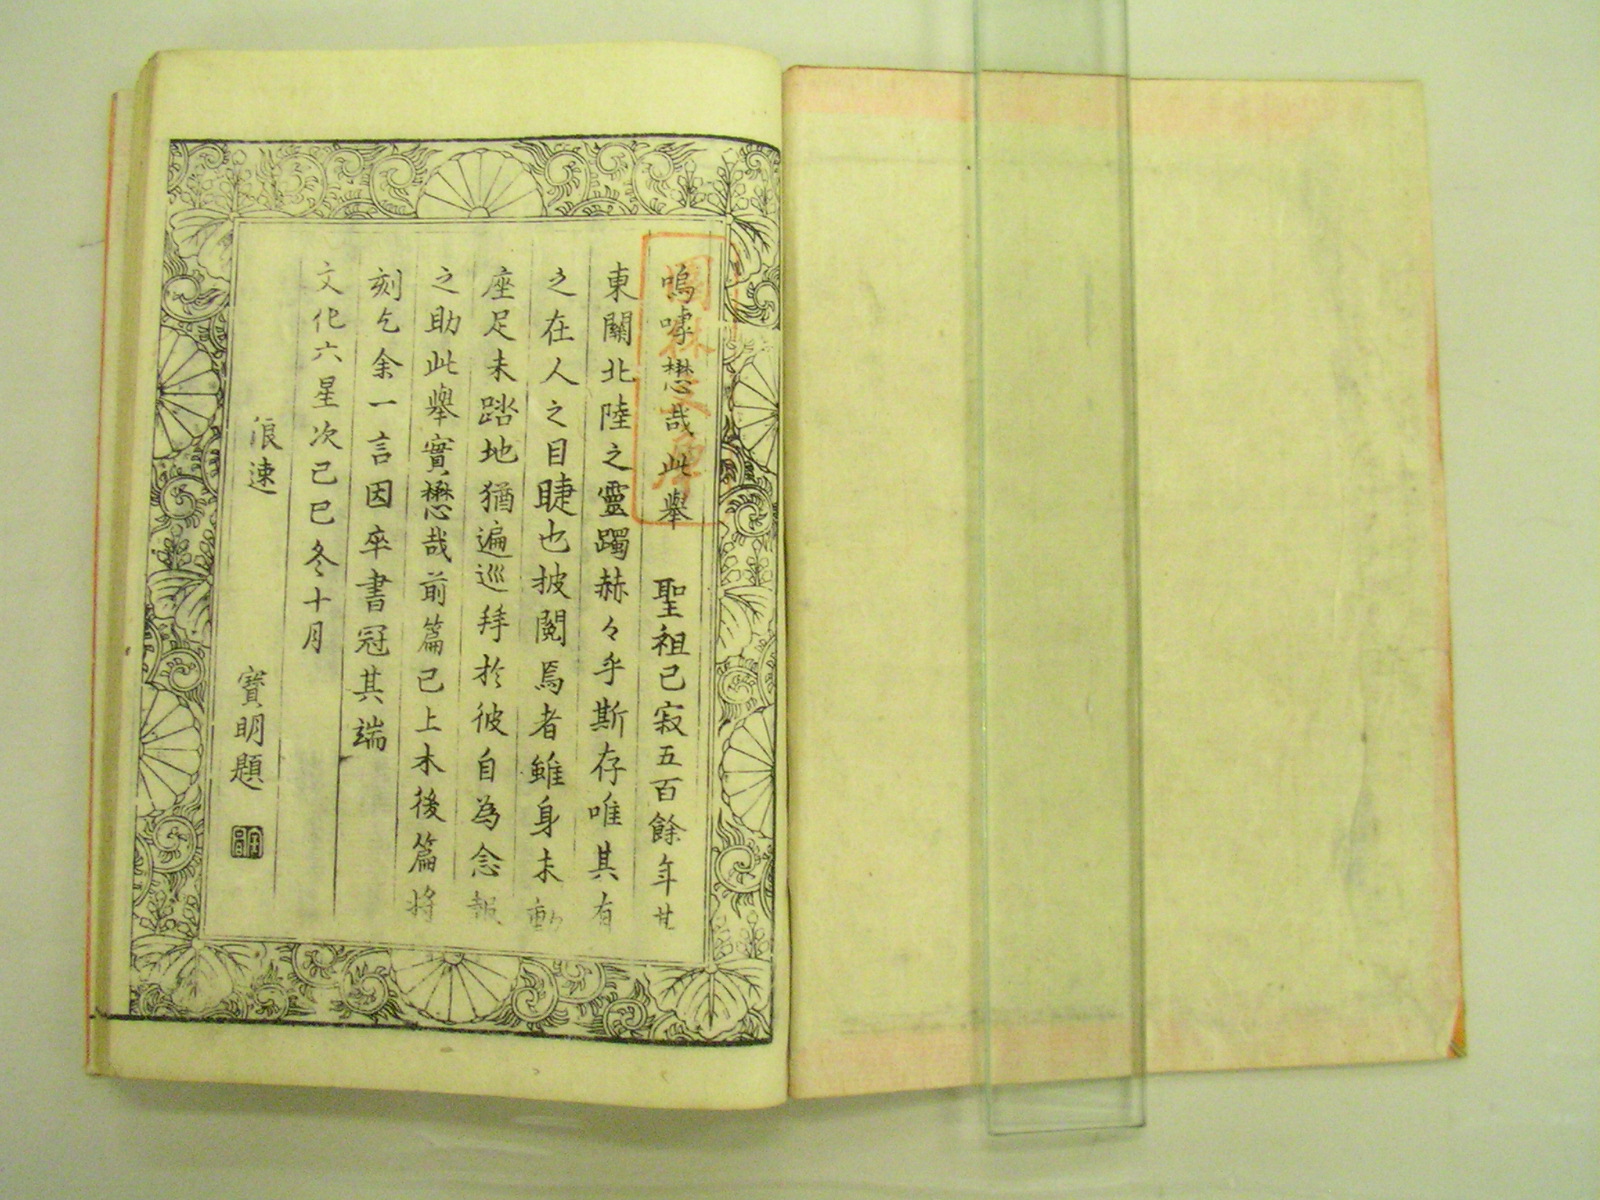 嗚嘑懋哉此舉　聖祖已寂五百餘年其
東關北陸之靈躅赫々乎斯存唯其有
之在人之目睫也披閱焉者雖身未動
座足未踏地猶遍巡拜於彼自為念報
之助此舉實懋哉前篇已上木後篇將
刻乞余一言因卒書冠其端
文化六星次己巳冬十月
浪速　寶明題